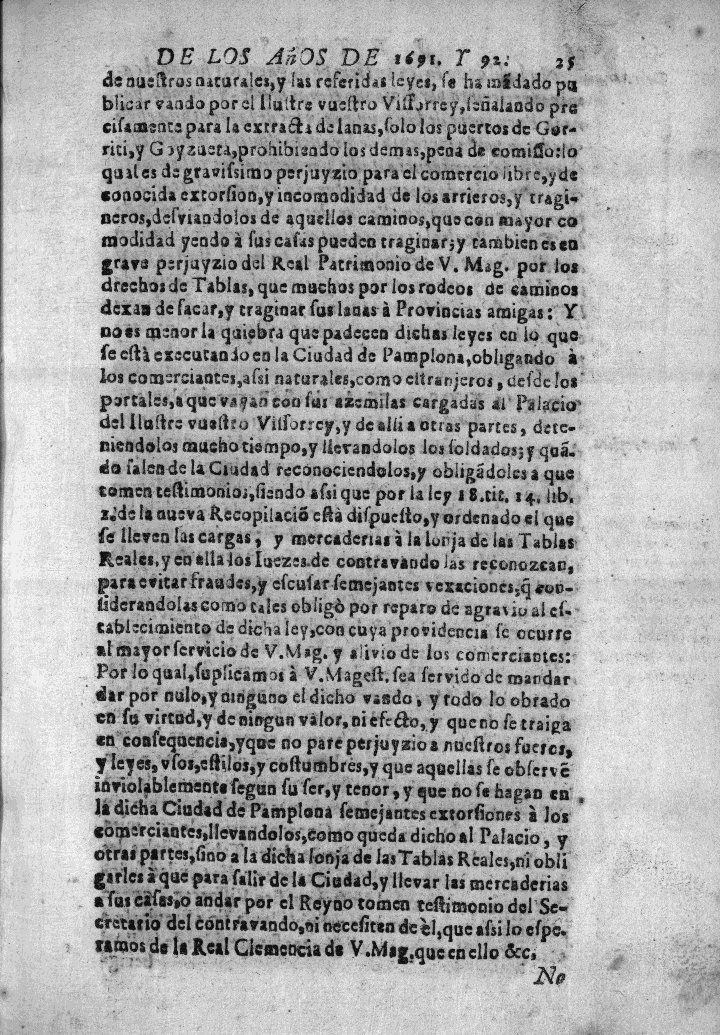 DE LOS AñOS DE 1691. Y 92. 25
de nuestros naturales, y las referidas leyes, se ha mãdado pu
blicar vando por el Ilustre vuestro Vissorrey, señalando pre
cisamente para la extracta de lanas, solo los puertos de Gor-
riti, y Goyzueta, prohibiendo los demas, pena de comisso: lo
qual es de gravissimo perjuyzio para el comercio libre, y de
conocida extorsion, y incomodidad de los arrieros, y tragi-
neros, desviandolos de aquellos caminos, que con mayor co
modidad yendo à sus casas pueden traginar; y tambien es en
grave perjuyzio del Real Patrimonio de V. Mag. por los
drechos de Tablas, que muchos por los rodeos de caminos
dexan de sacar, y traginar sus lanas à Provincias amigas: Y
no es menor la quiebra que padecen dichas leyes en lo que
se està executando en la Ciudad de Pamplona, obligando à
los comerciantes, assi naturales, como estranjeros, desde los
portales, a que vayan con sus azemilas cargadas al Palacio
del Ilustre vuestro Vissorrey, y de alli a otras partes, dete-
niendolos mucho tiempo, y llevandolos los soldados; y quã-
do salen de la Ciudad reconociendolos, y obligãdoles a que
tomen testimonios, siendo assi que por la ley 18. tit. 14. lib.
2. de la nueva Recopilaciõ està dispuesto, y ordenado el que
se lleven las cargas, y mercaderias à la lonja de las Tablas
Reales, y en ella los Iuezes de contravando las reconozcan,
para evitar fraudes, y escusar semejantes vexaciones, q̃ con-
siderandolas como tales obligò por reparo de agravio al es-
tablecimiento de dicha ley, con cuya providencia se ocurre
al mayor servicio de V. Mag. y alivio de los comerciantes:
Por lo qual, suplicamos à V. Magest. sea servido de mandar
dar por nulo, y ninguno el dicho vando, y todo lo obrado
en su virtud, y de ningun valor, ni efecto, y que no se traiga
en consequencia, y que no pare perjuyzio a nuestros fueros,
y leyes, vsos, estilos, y costumbres, y que aquellas se observẽ
inviolablemente segun su ser, y tenor, y que no se hagan en
la dicha Ciudad de Pamplona semejantes extorsiones à los
comerciantes, llevandolos, como queda dicho al Palacio, y
otras partes, sino a la dicha lonja de las Tablas Reales, ni obli
garles à que para salir de la Ciudad, y llevar las mercaderias
a sus casas, o andar por el Reyno tomen testimonio del Se-
cretario del contravando, ni necesiten de èl, que assi lo espe-
ramos de la Real Clemencia de V. Mag. que en ello &c.
No